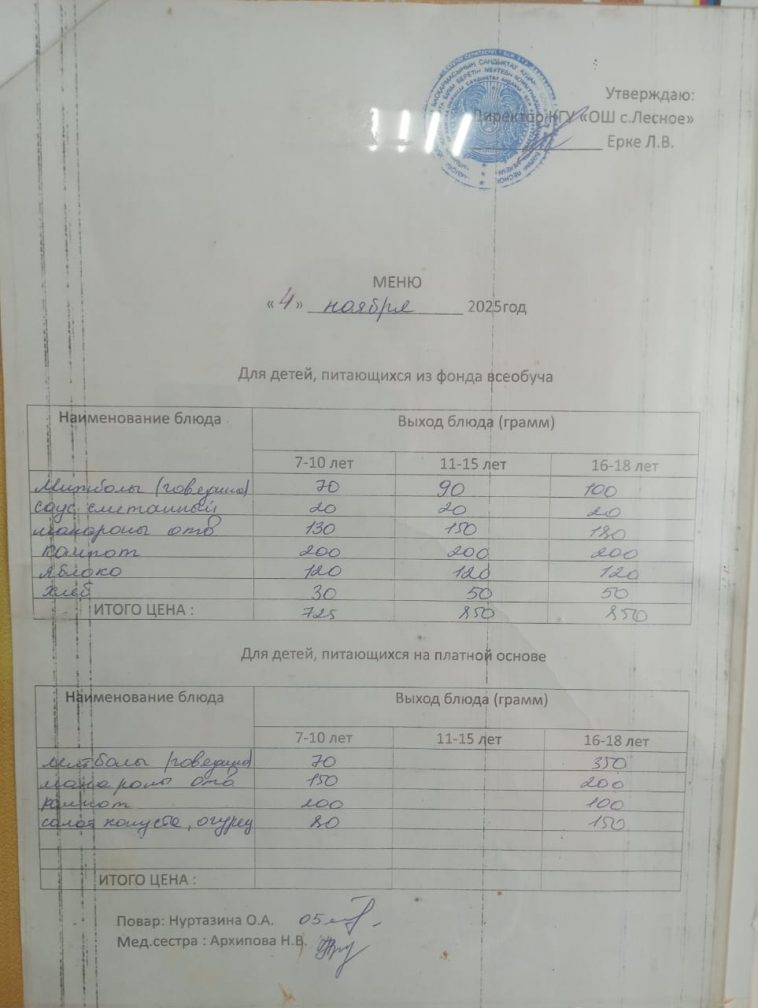 Утверждаю:
Директор КГУ «ОШ с.Лесное»
Ерке Л.В.
МЕНЮ
«4» ноября 2025год
Для детей, питающихся из фонда всеобуча
Наименование блюда Выход блюда (грамм)
7-10 лет 11-15 лет 16-18 лет
Митболы (говядина) 70 90 100
соус сметанный 20 20 20
макароны отв 130 150 180
Компот 200 200 200
Яблоко 120 120 120
Хлеб 30 50 50
ИТОГО ЦЕНА : 725 850 850
Для детей, питающихся на платной основе
Наименование блюда Выход блюда (грамм)
7-10 лет 11-15 лет 16-18 лет
митболы (говядина) 70 350
макароны отв 150 200
компот 200 100
салат капуста, огурец 80 150
ИТОГО ЦЕНА :
Повар: Нуртазина О.А.
Мед.сестра : Архипова Н.В.